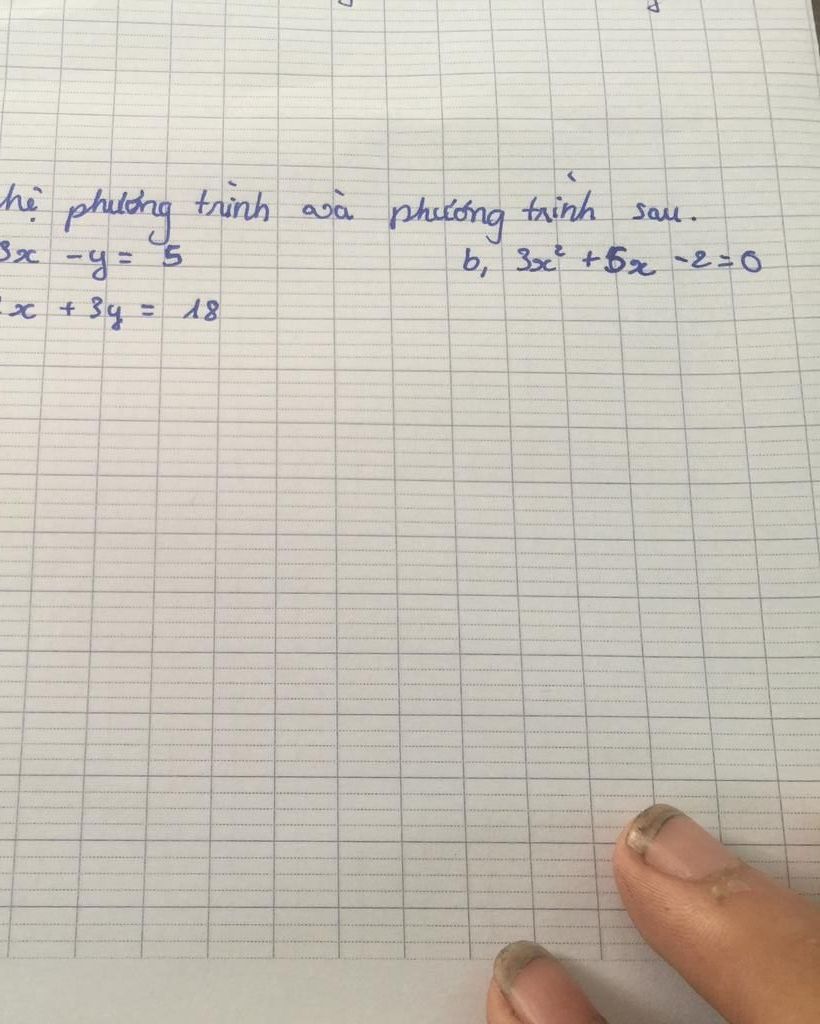 hệ phương trình và phương trình sau.
3x - y = 5 b, 3x² + 5x - 2 = 0
x + 3y = 18